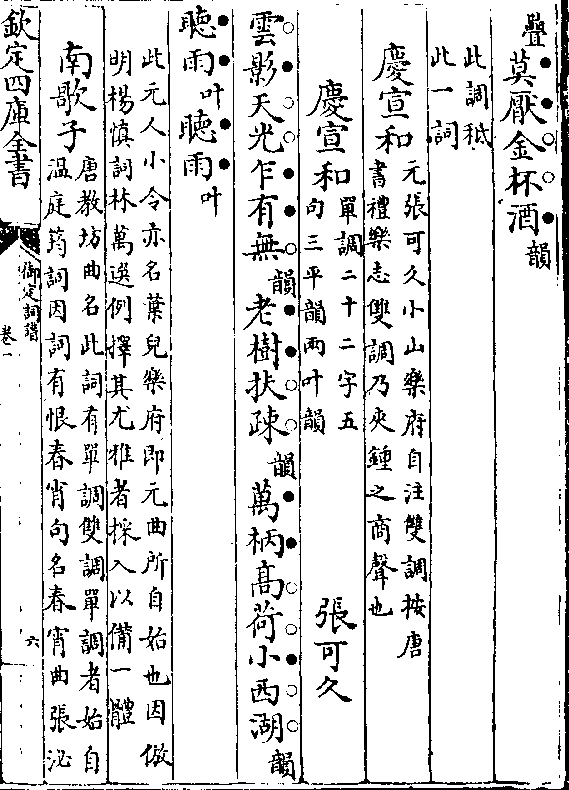 疊莫厭金杯酒韻
此調秖
此一詞
慶宣和元張可久小山樂府自注雙調按唐
書禮樂志雙調乃夾鍾之商聲也
慶宣和單調二十二字五
句三平韻兩叶韻
張可久
雲影天光乍有無韻老樹扶疎韻萬柄髙荷小西湖韻
聽雨叶聽雨叶
此元人小令亦名葉兒樂府即元曲所自始也因倣
明楊慎詞林萬選例擇其尤雅者採入以備一體
南歌子唐教坊曲名此詞有單調雙調單調者始自
温庭筠詞因詞有恨春宵句名春宵曲張泌
欽定四庫全書
御定詞譜
卷一
六